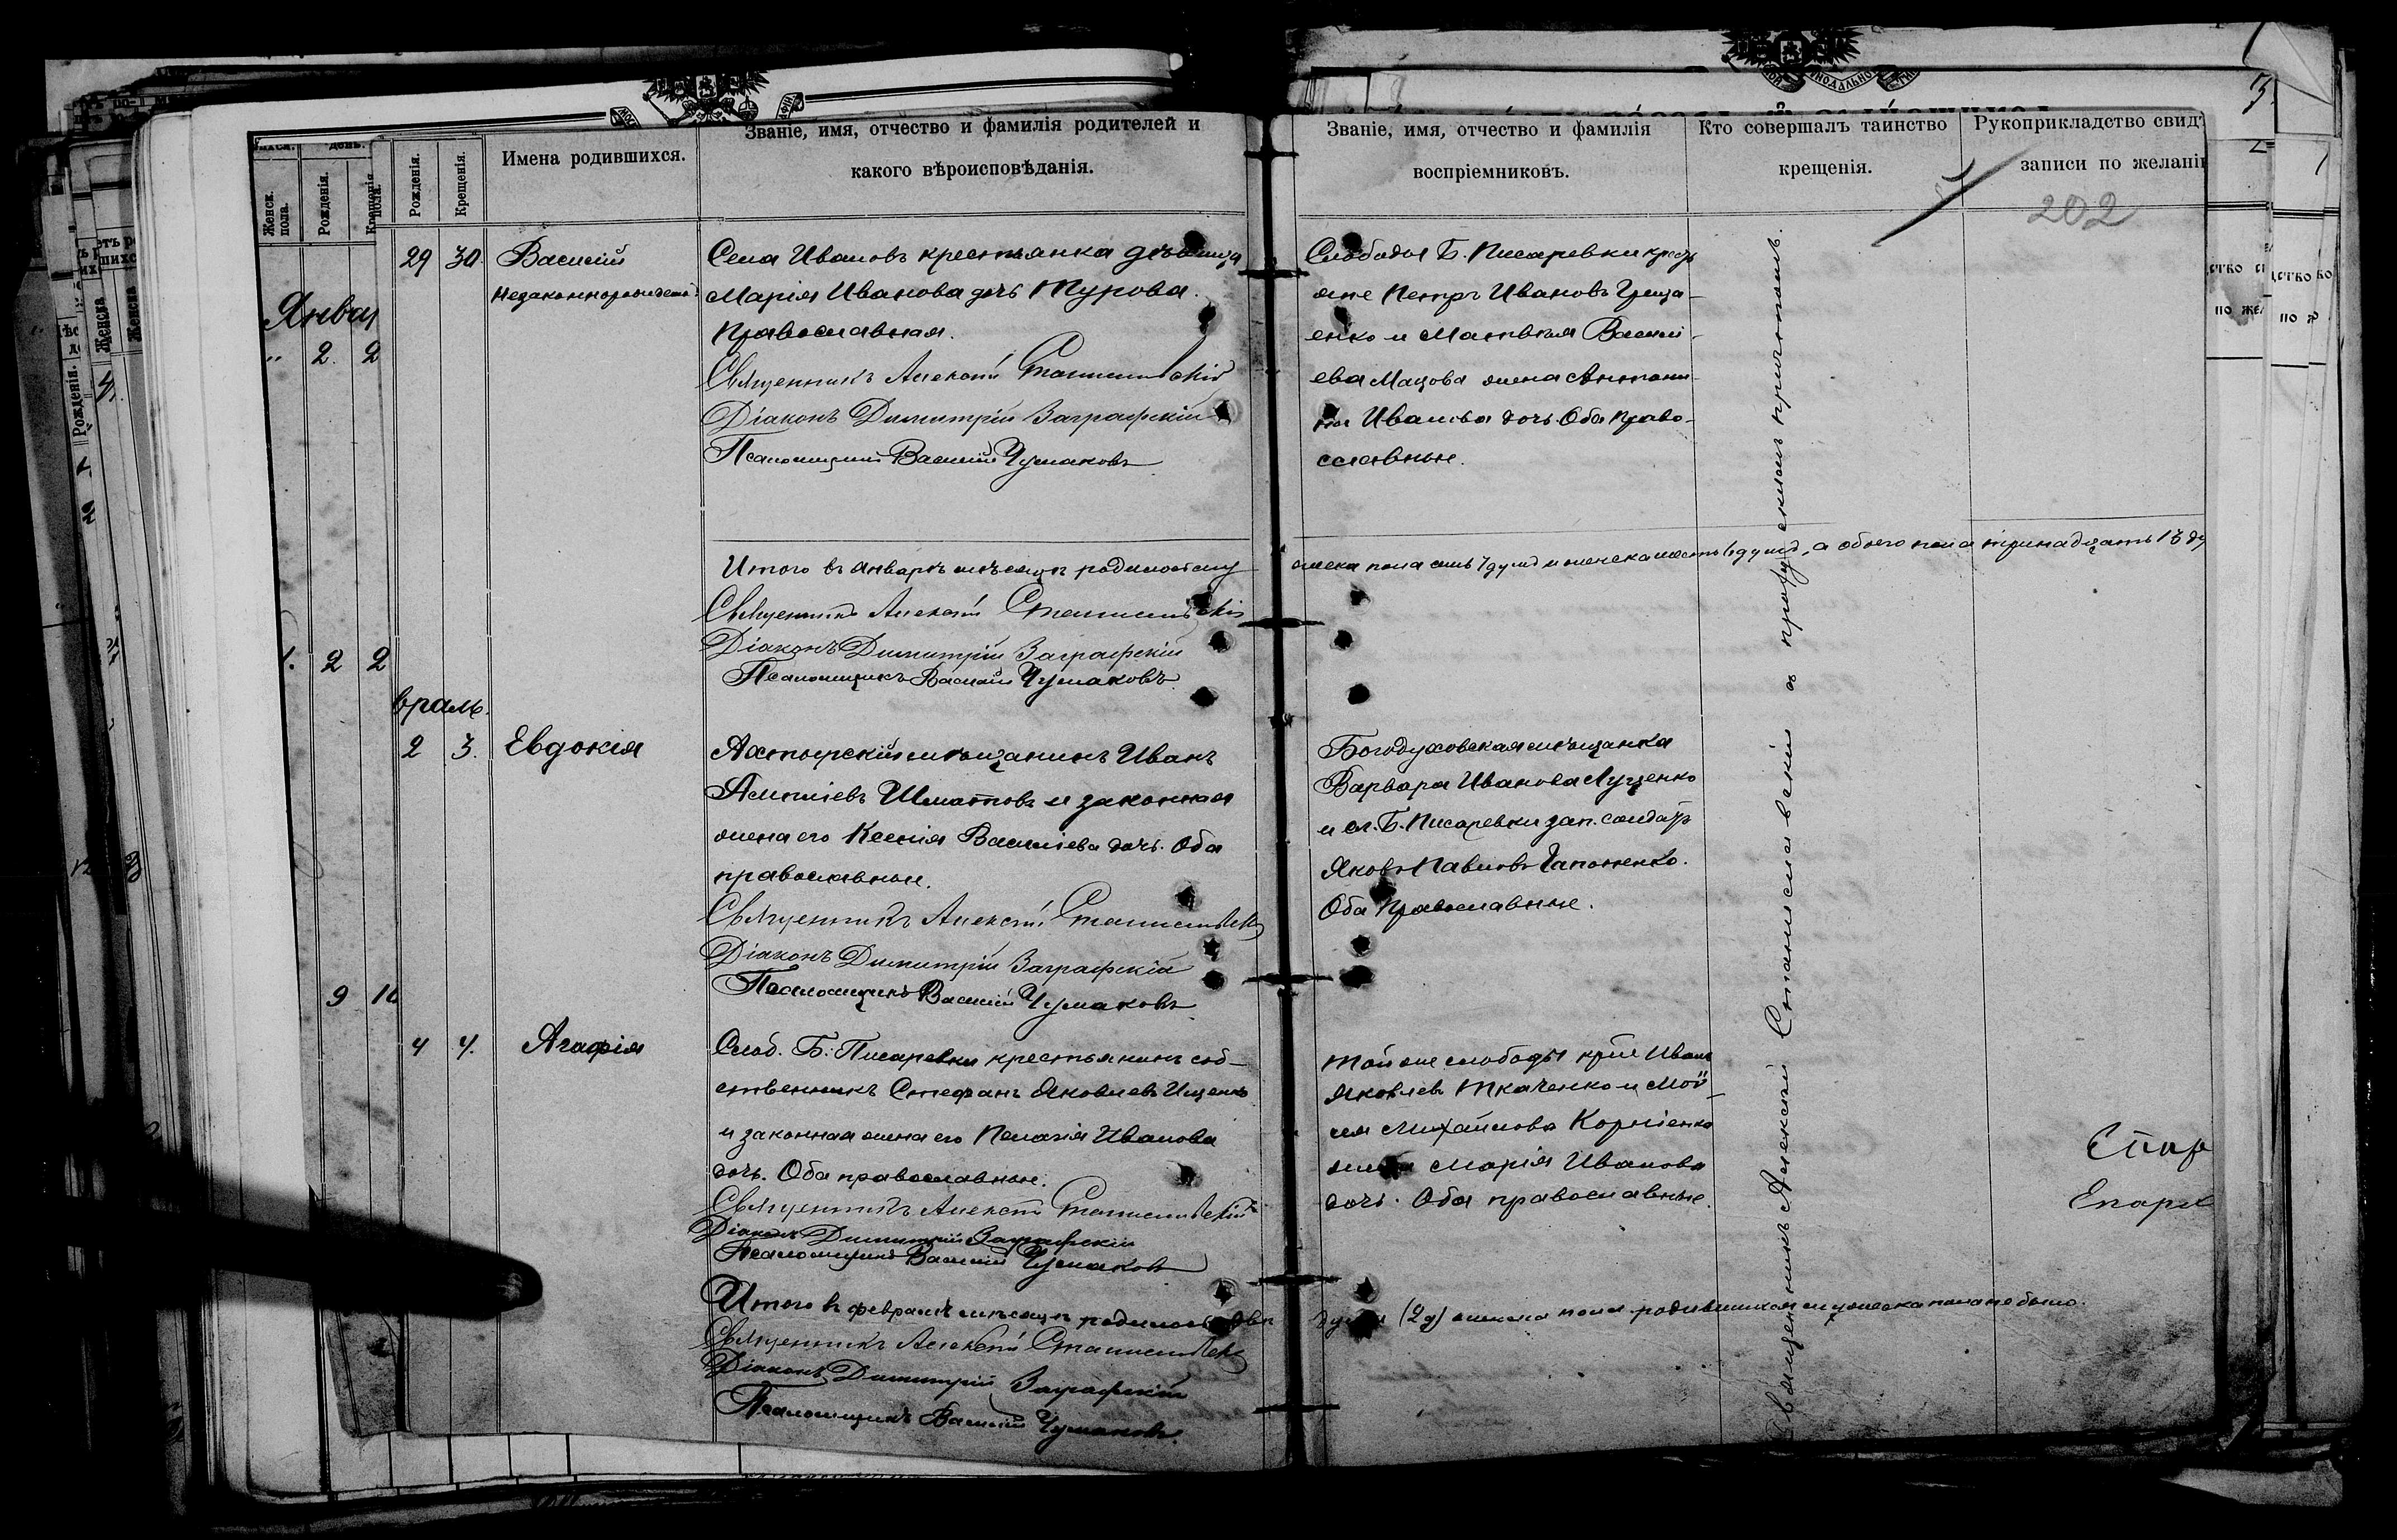 Рожденія.
Крещенія.
Имена родившихся.
Званіе, имя, отчество и фамилія родителей и
какого вѣроисповѣданія.
Званіе, имя, отчество и фамилія
воспріемниковъ.
Кто совершалъ таинство
крещенія.
Рукоприкладство свидѣ
записи по желані
202
Женск. пола.
Рожденія.
Январ
2. 2
2 2
9 10
29 30. Василій
незаконнорожден.
Села Ивановъ крестьянка дѣвица
Марія Иванова дочь Турова.
Православная.
Священникъ Алексѣй Станиславскій
Діаконъ Димитрій Заграфскій
Псаломщикъ Василій Чумаковъ
Слободы Б. Писаревки крест
яне Петръ Ивановъ Грица-
енко и Матвѣя Василі-
ева Мацова жена Антони-
на Иванова дочь. Оба право-
славные.
Итого въ Январѣ мѣсяцѣ родилось муж
еска пола семь 7 душъ и женска шесть 6 душъ, а обоего пола тринадцать 13 ду
Священникъ Алексѣй Станиславскій
Діаконъ Димитрій Заграфскій
Псаломщикъ Василій Чумаковъ
враль.
2 3. Евдокія
Ахтырскій мѣщанинъ Иванъ
Шматовъ и законная
жена его Ксенія Василіева дочь. Оба
православные.
Священникъ Алексѣй Станиславскій
Діаконъ Димитрій Заграфскій
Псаломщикъ Василій Чумаковъ
Богодуховская мѣщанка
Варвара Иванова Луценко
и сл. Б. Писаревки зап. солдатъ
Яковъ Павловъ Гапоненко.
Оба Православные.
4 4. Агафія
Слоб. Б. Писаревки крестьянинъ соб-
ственникъ Стефанъ Яковлевъ Ищенко
и законная жена его Пелагія Иванова
дочь. Оба православные.
Священникъ Алексѣй Станиславскій
Діаконъ Димитрій Заграфскій
Псаломщикъ Василій Чумаковъ
Той же слободы Иванъ
Яковлевъ Ткаченко и Мой-
сея Михайлова Корніенко
жена Марія Иванова
дочь. Оба православные.
Итого въ февралѣ мѣсяцѣ родилось двѣ
души (2 д) женска пола родившихся мужеска пола не было.
Священникъ Алексѣй Станиславскій
Діаконъ Димитрій Заграфскій
Псаломщикъ Василій Чумаковъ.
Священникъ Алексѣй Станиславскій съ причтомъ.
Епарх